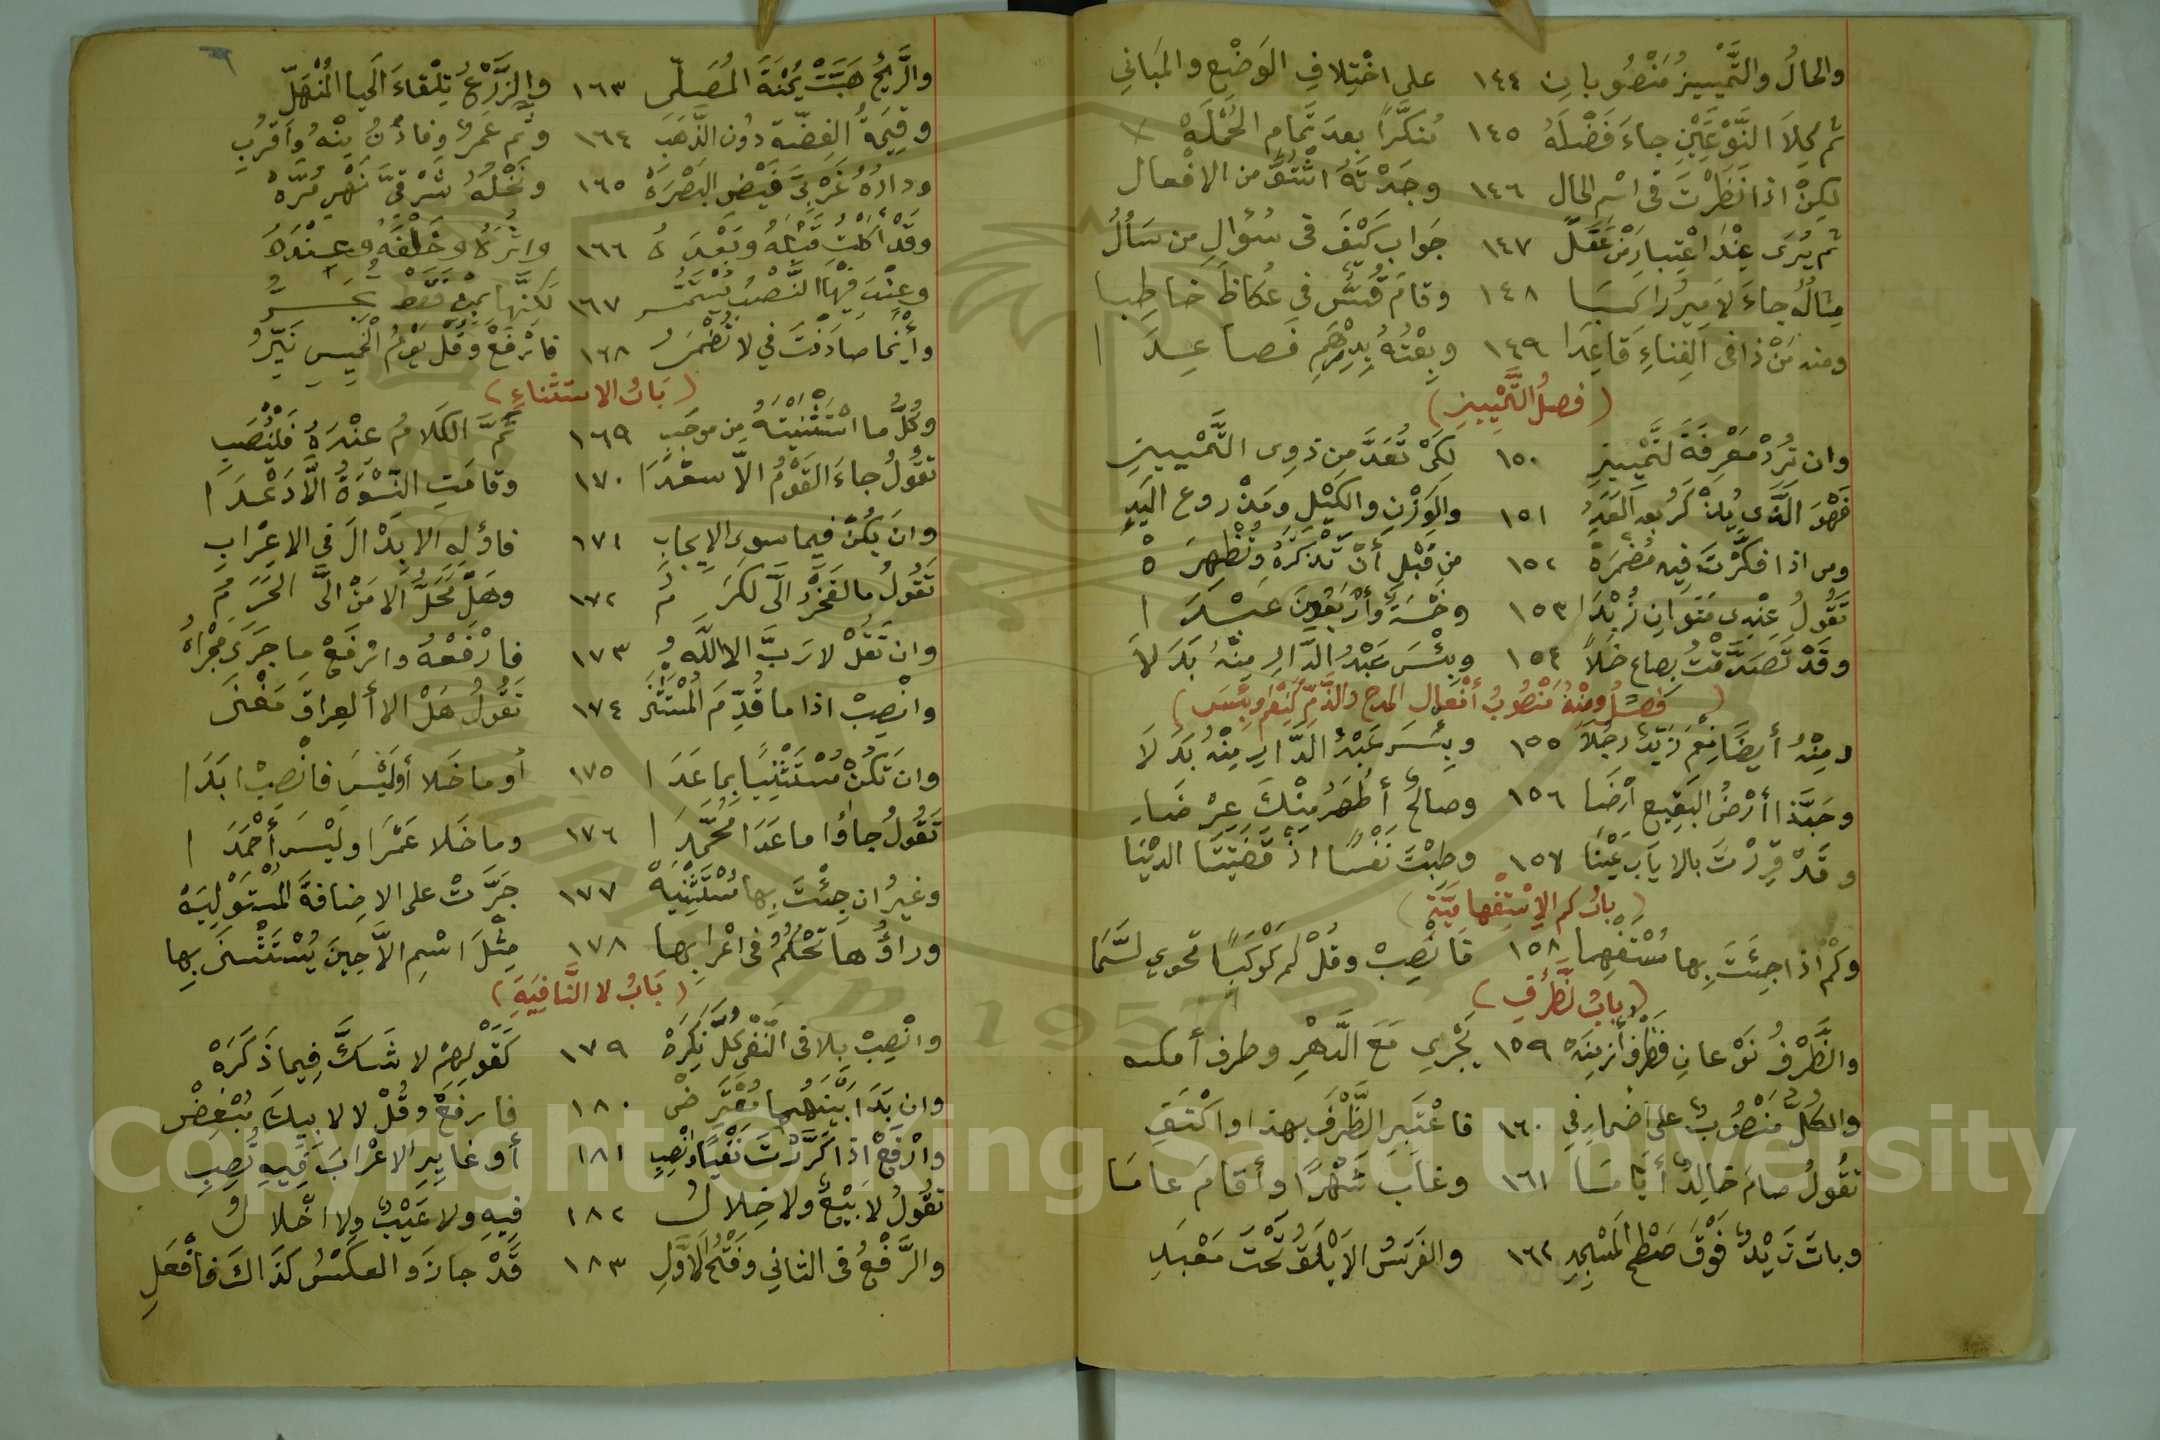 والحالُ والتَّمْيِيزُ مَنْصُوبانِ ١٤٤ على اخْتِلافِ الوَضْعِ والمَبَاني
ثم كِلَا النَّوْعَيْنِ جاءَ فَضْلَهْ ١٤٥ مُنَكَّرًا بعدَ تَمَامِ الجُمْلَهْ
لكِنْ اذا نَظَرْتَ فى اسْمِ الحال ١٤٦ وجَدْتَهُ اشْتُقَّ من الافْعال
ثم يُرَى عِنْدَ اعْتِبارِ مَنْ عَقَلْ ١٤٧ جَوابَ كَيْفَ فى سُؤالِ من سَأَلْ
مِثالُهُ جاءَ لاَمِيرُ راكِبَا ١٤٨ وقامَ قُسٌّ في عكاظَ خاطِبا
ومنه مَنْ ذا فى الفِناءِ قَاعِدَا ١٤٩ وبِعْتُهُ بِدِرْهَمٍ فَصاعِدَا
(فصلُ التَّمْيِيزِ)
وان تُرِدْ مَعْرِفَةَ لتَّمْيِيزِ ١٥٠ لِكَىْ تُعَدَّ مِن ذوِى التَّمْيِيزِ
فَهْوَ الَّذى يُذْكَرُ بعدَ العَدَدِ ١٥١ والوَزْنِ والكَيْلِ ومَذْروعِ اليَدِ
ومن اذا فكَّرْتَ فِيه مُضْمَرَهْ ١٥٢ من قَبْلِ أنْ تَذْكُرَهُ وتُظْهِرَهْ
تَقُولُ عِنْدِى مَنَوانِ زُبْدَا ١٥٣ وخَمْسَةٌ وأرْبَعُونَ عَبْدَا
وقَدْ تَصَدَّقْتُ بصاعٍ خَلاًّ ١٥٤ وبِئْسَ عَبْدُ الدَّارِ مِنْهُ بَدَلاَ
(فصلٌ ومِنْهُ مَنْصُوبُ أفْعالِ المدحِ والذَّمِّ كَنِعْمَ وبِئْسَ)
ومِنْهُ أيضًا نِعْمَ زَيْدٌ رجُلاَ ١٥٥ وبِئْسَ عَبْدُ الدَّارِ مِنْهُ بَدَلاَ
وحَبَّذا أرْضُ البَقِيعِ أرْضَا ١٥٦ وصالحٌ أطْهَرُ مِنْكَ عِرْضَا
وقَدْ قَرِرْتَ بالايابِ عَيْنَا ١٥٧ وطِبْتَ نَفْسًا اذْ قَضَيْتَ الديْنَا
(بابُ كم الاِسْتِفْهامِيَّةِ)
وكَمْ اذا جِئْتَ بِها مُسْتَفْهِما ١٥٨ فانْصِبْ وقُلْ كم كَوْكَبًا تحوي لسَّمَا
(بابُ لظَّرْفِ)
والظَّرْفُ نَوْعانِ فَظَرْفُ أزمِنَه ١٥٩ يَجْرِي مَعَ الدَّهْرِ وظرف أمكنه
والكُلُّ مَنْصُوبٌ على اضْمارِ فِي ١٦٠ فاعْتَبِرِ الظَّرْفَ بهذا واكْتَفِ
تقُولُ صامَ خالِدٌ أيَّامَا ١٦١ وغابَ شَهْرًا وأقامَ عامَا
وباتَ زَيْدٌ فَوْقَ سَطْحِ المَسْجِدِ ١٦٢ والفَرَسُ الابْلَقُ تَحْتَ مَعْبَدِ
والرِّيحُ هَبَّتْ يَمْنَةَ المُصَلِّى ١٦٣ والزَّرْعُ تِلْقاءَ الحَيا المُنْهَلِّ
وقِيمَةُ الفِضّةِ دُونَ الذَّهَبِ ١٦٤ وثَمَّ عَمْرٌو فادْنُ مِنْهُ واَقرُبِ
ودارُهُ غَرْبِىَّ فَيْضِ البَصْرَهْ ١٦٥ ونَخْلُهُ شَرْقِىَّ نَهْرِ مُرَّهْ
وقَدْ أكَلْتُ قَبْلَهُ وبَعْدَهُ ١٦٦ واثْرَهُ وخَلْفَهُ وعِنْدَهُ
وعِنْدَ فِيها النَّصْبُ يَسْتَمِرُّ ١٦٧ لكنَّها بمِنْ فَقَطْ تُجَرُّ
وأيْنَما صادَفْتَ في لا تُضْمَرُ ١٦٨ فارْفَعْ وقُلْ يَوْمُ الخَمِيسِ نَيِّرُ
(بَابُ الاستثناءِ)
وكُلُّ ما اسْتَثْنَيْتَهُ مِن موجَبِ ١٦٩ تَمَّ الكَلامُ عِنْدَهُ فَلْيُنْصَبِ
تقُولُ جاءَ القَوْمُ الاّ سعْدَا ١٧٠ وقامَتِ النِّسْوَةُ الاَّ دَعْدَا
وانْ يَكُنْ فيما سِوى الايجابِ ١٧١ فاوْلِهِ الابْدالَ في الاعْرابِ
تَقُولُ ما لفَخْرُ الَّا لكَرَمُ ١٧٢ وهَلْ مَحَلُّ الامْنِ الَّا الحَرَمُ
وان تَقُلْ لا رَبَّ الا اللَّهُ ١٧٣ فارْفَعْهُ وارْفَعْ ما جَرَى مَجْراهُ
وانْصِبْ اذا ما قُدِّمَ المُسْتَثْنَى ١٧٤ تَقُولُ هَلْ الا ألعِراقَ مَغْنَى
وان تَكُنْ مُسْتَثْنِيًا بما عَدَا ١٧٥ أوما خَلا أو لَيْسَ فانْصِبْ ابَدَا
تَقُولُ جاؤا ما عَدَا مُحَمَّدَا ١٧٦ وما خَلا عَمْرَا ولَيْسَ أحْمَدَا
وغيرُ ان جِئْتَ بِها مُسْتَثْنِيَهْ ١٧٧ جَرَّتْ على الاضافةِ المُسْتَوْلِيَهْ
وراؤُها تَحْكُمُ فى اعْرابِها ١٧٨ مِثْلَ اسْمِ الاَّ حِينَ يُسْتَثْنَى بِها
(بَابُ لا النَّافِيَةِ)
وانْصِبْ بِلا فى النَّفْىِ كُلَّ نَكِرَهْ ١٧٩ كَقَوْلِهِمْ لا شَكَّ فِيما ذَكَرَهْ
وان بَدَا بَيْنَهُما مُعْتَرِضْ ١٨٠ فارفَعْ وقُلْ لا لابِيكَ مُبْغِضْ
وارْفَعْ اذا كَرَّرْتَ نَفْيًا وانْصِبِ ١٨١ أوغايِرِ الاعْرابَ فِيهِ تُصِبِ
تقُولُ لا بَيْعٌ ولا خِلالُ ١٨٢ فِيهِ ولا عَيْبٌ ولا اخْلالُ
والرَّفْعُ فى الثاني وفَتْحُ الاَوَّلِ ١٨٣ قَدْ جازَ والعكسُ كذَاكَ فافْعَلِ
Copyright © King Saud University
1957